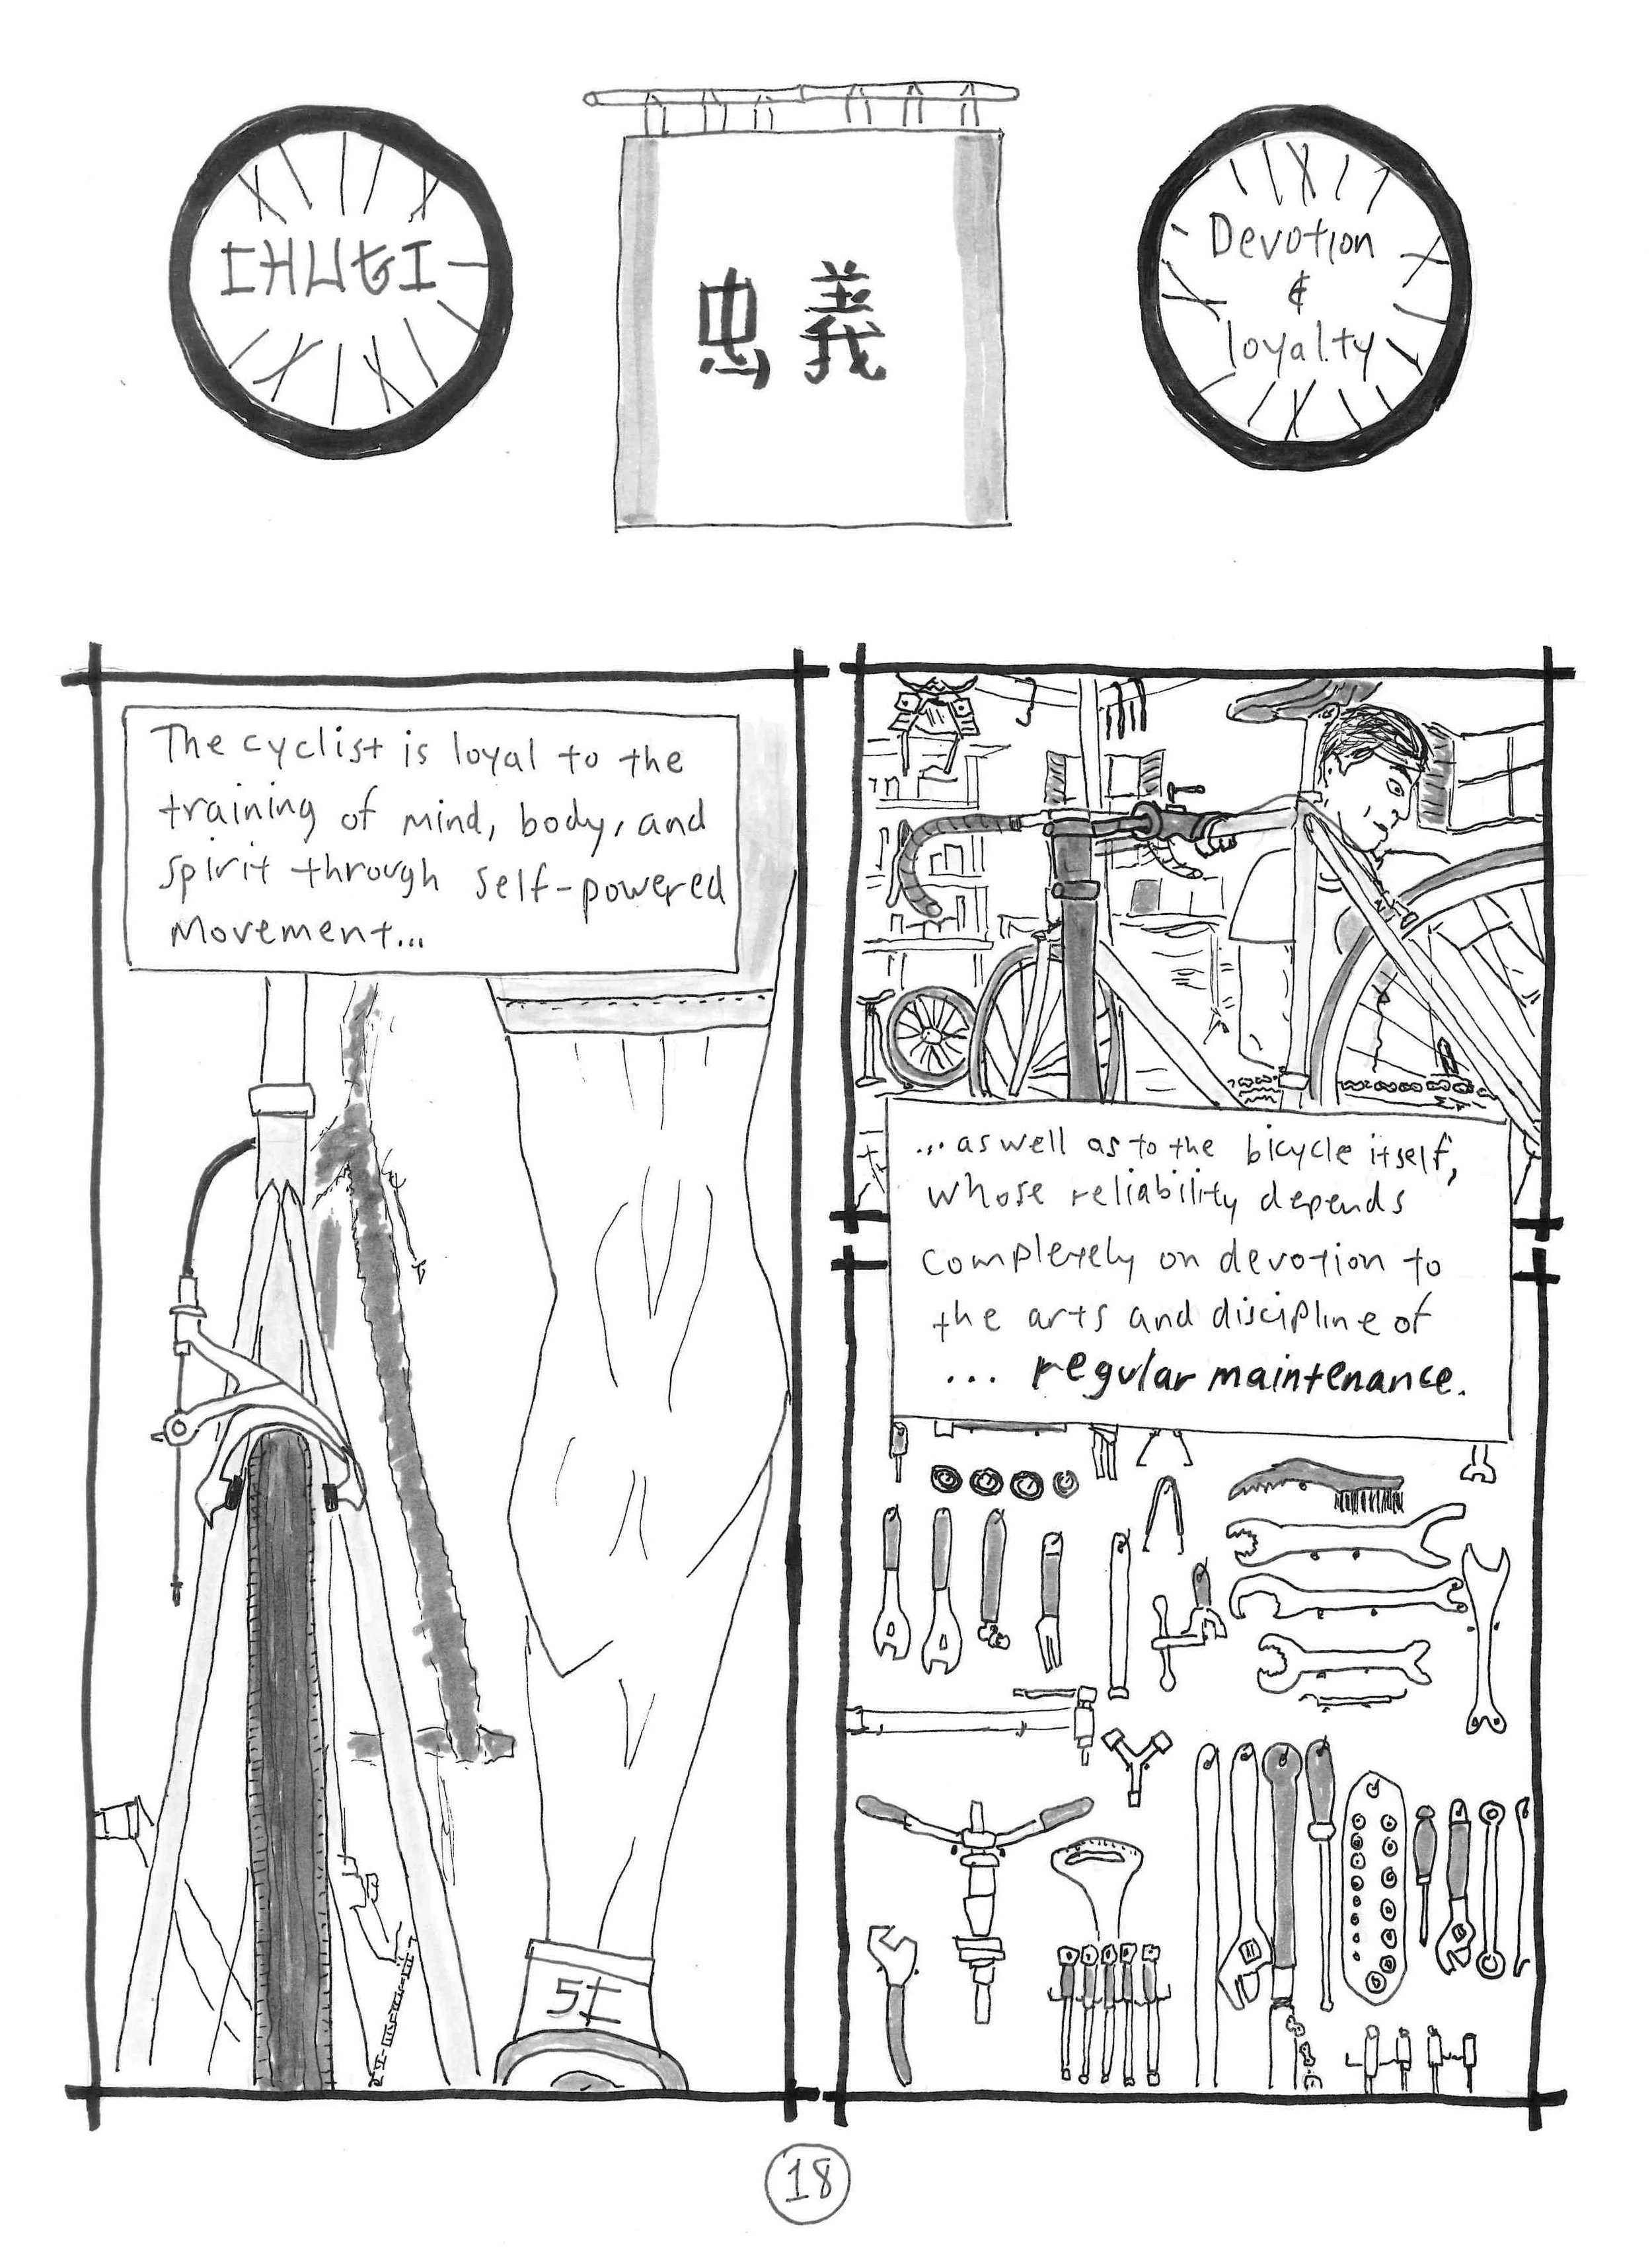 CHUGI
忠義
Devotion
&
loyalty
The cyclist is loyal to the
training of mind, body, and
spirit through self-powered
movement...
... as well as to the bicycle itself,
whose reliability depends
completely on devotion to
the arts and discipline of
... regular maintenance.
18